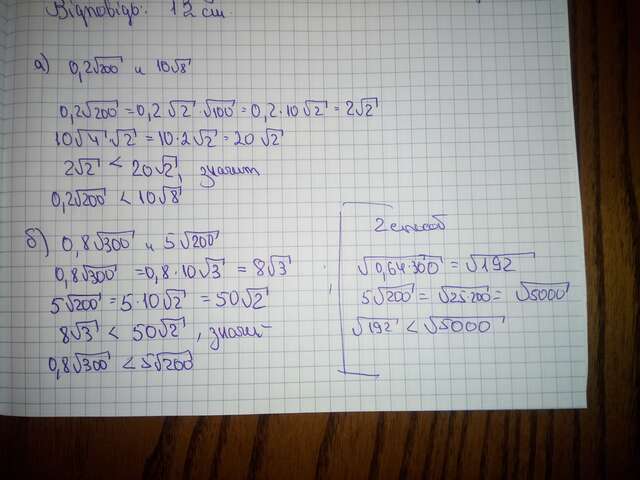 Відповідь: 12 см
а) 0,2√200 и 10√8
0,2√200 = 0,2√2·√100 = 0,2·10√2 = 2√2
10√4·√2 = 10·2√2 = 20√2
2√2 < 20√2, значит
0,2√200 < 10√8
б) 0,8√300 и 5√200
0,8√300 = 0,8·10√3 = 8√3
5√200 = 5·10√2 = 50√2
8√3 < 50√2, значит
0,8√300 < 5√200
2 способ
√0,64·300 = √192
5√200 = √25·200 = √5000
√192 < √5000